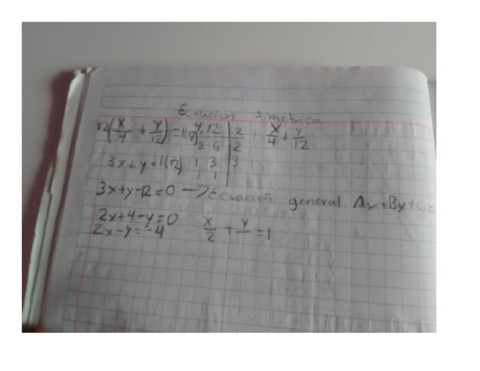 Ecuación simetrica
12(x/4 + y/12) = 1(12) 4, 12 | 2 x/4 + y/12
2 6 | 2
3x + y = 1(12) 1 3 | 3
1 1
3x+y-12=0 → Ecuación general Ax+By+C=
2x+4-y=0
2x-y=-4 x/2 + y/ =1